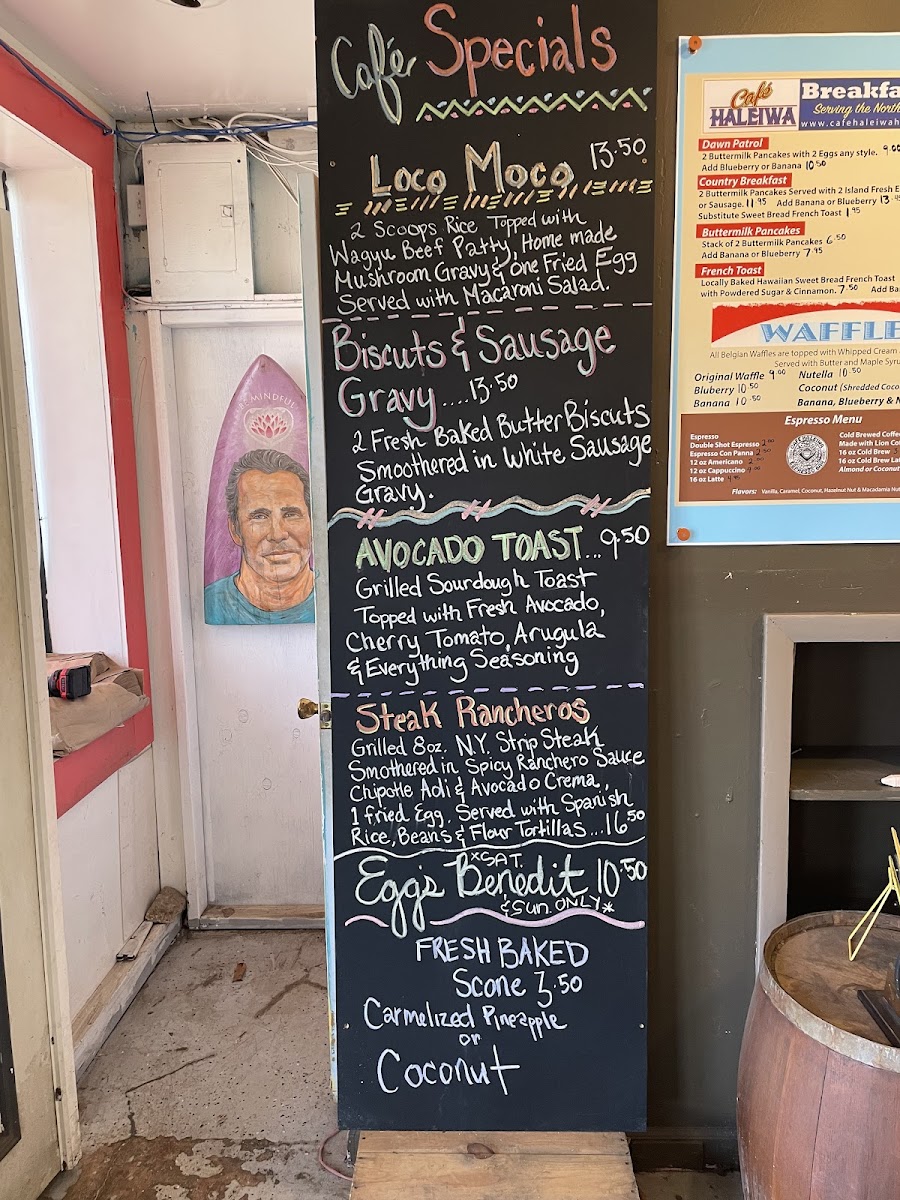 Café Specials
Loco Moco 13.50
2 Scoops Rice Topped with
Wagyu Beef Patty, Home made
Mushroom Gravy & one Fried Egg
Served with Macaroni Salad.
Biscuts & Sausage
Gravy.....13.50
2 Fresh Baked Butter Biscuts
Smoothered in White Sausage
Gravy.
AVOCADO TOAST...9.50
Grilled Sourdough Toast
Topped with Fresh Avocado,
Cherry Tomato, Arugula
& Everything Seasoning
Steak Rancheros
Grilled 8oz. N.Y. Strip Steak
Smothered in Spicy Ranchero Sauce
Chipotle Aoli & Avocado Crema,
1 fried Egg. Served with Spanish
Rice, Beans & Flour Tortillas...16.50
*SAT.
Eggs Benedit 10.50
& Sun. ONLY*
FRESH BAKED
Scone 3.50
Carmelized Pineapple
or
Coconut
MINDFUL
Café
HALEIWA
Breakfa
Serving the North
www.cafehaleiwah
Dawn Patrol
2 Buttermilk Pancakes with 2 Eggs any style. 9.00
Add Blueberry or Banana 10.50
Country Breakfast
2 Buttermilk Pancakes Served with 2 Island Fresh E
or Sausage. 11.95 Add Banana or Blueberry 13.95
Substitute Sweet Bread French Toast 1.95
Buttermilk Pancakes
Stack of 2 Buttermilk Pancakes 6.50
Add Banana or Blueberry 7.95
French Toast
Locally Baked Hawaiian Sweet Bread French Toast
with Powdered Sugar & Cinnamon. 7.50 Add Ba
WAFFLE
All Belgian Waffles are topped with Whipped Cream
Served with Butter and Maple Syru
Original Waffle 9.00 Nutella 10.50
Bluberry 10.50 Coconut (Shredded Coco
Banana 10.50 Banana, Blueberry & N
Espresso Menu
Espresso
Double Shot Espresso 2.00
Espresso Con Panna 2.50
12 oz Americano
12 oz Cappuccino
16 oz Latte 4.95
Cold Brewed Coffe
Made with Lion Co
16 oz Cold Brew
16 oz Cold Brew Lat
Almond or Coconut
Flavors: Vanilla, Caramel, Coconut, Hazelnut Nut & Macadamia Nu